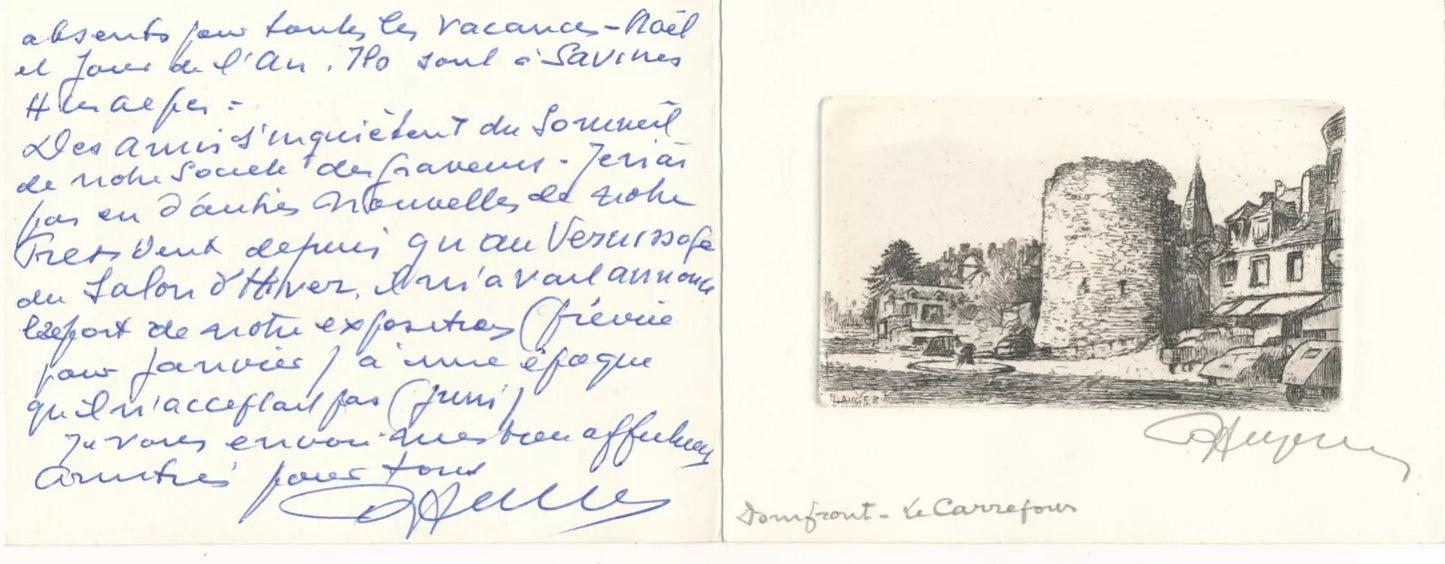 absents pour toutes les vacances - Noël
et Jour de l'An. Ils sont à Savines
Htes Alpes -
Des amis s'inquiètent du Sommeil
de notre Société des graveurs - Je n'ai
pas eu d'autres nouvelles de notre
Président depuis qu'au Vernissage
du Salon d'Hiver, il m'avait annoncé
le report de notre exposition (prévue
pour janvier) à une époque
qu'il n'acceptait pas (juin)
Je vous envoie mes bien affectueuses
amitiés pour tous
R. AUGER
Domfront - Le Carrefour